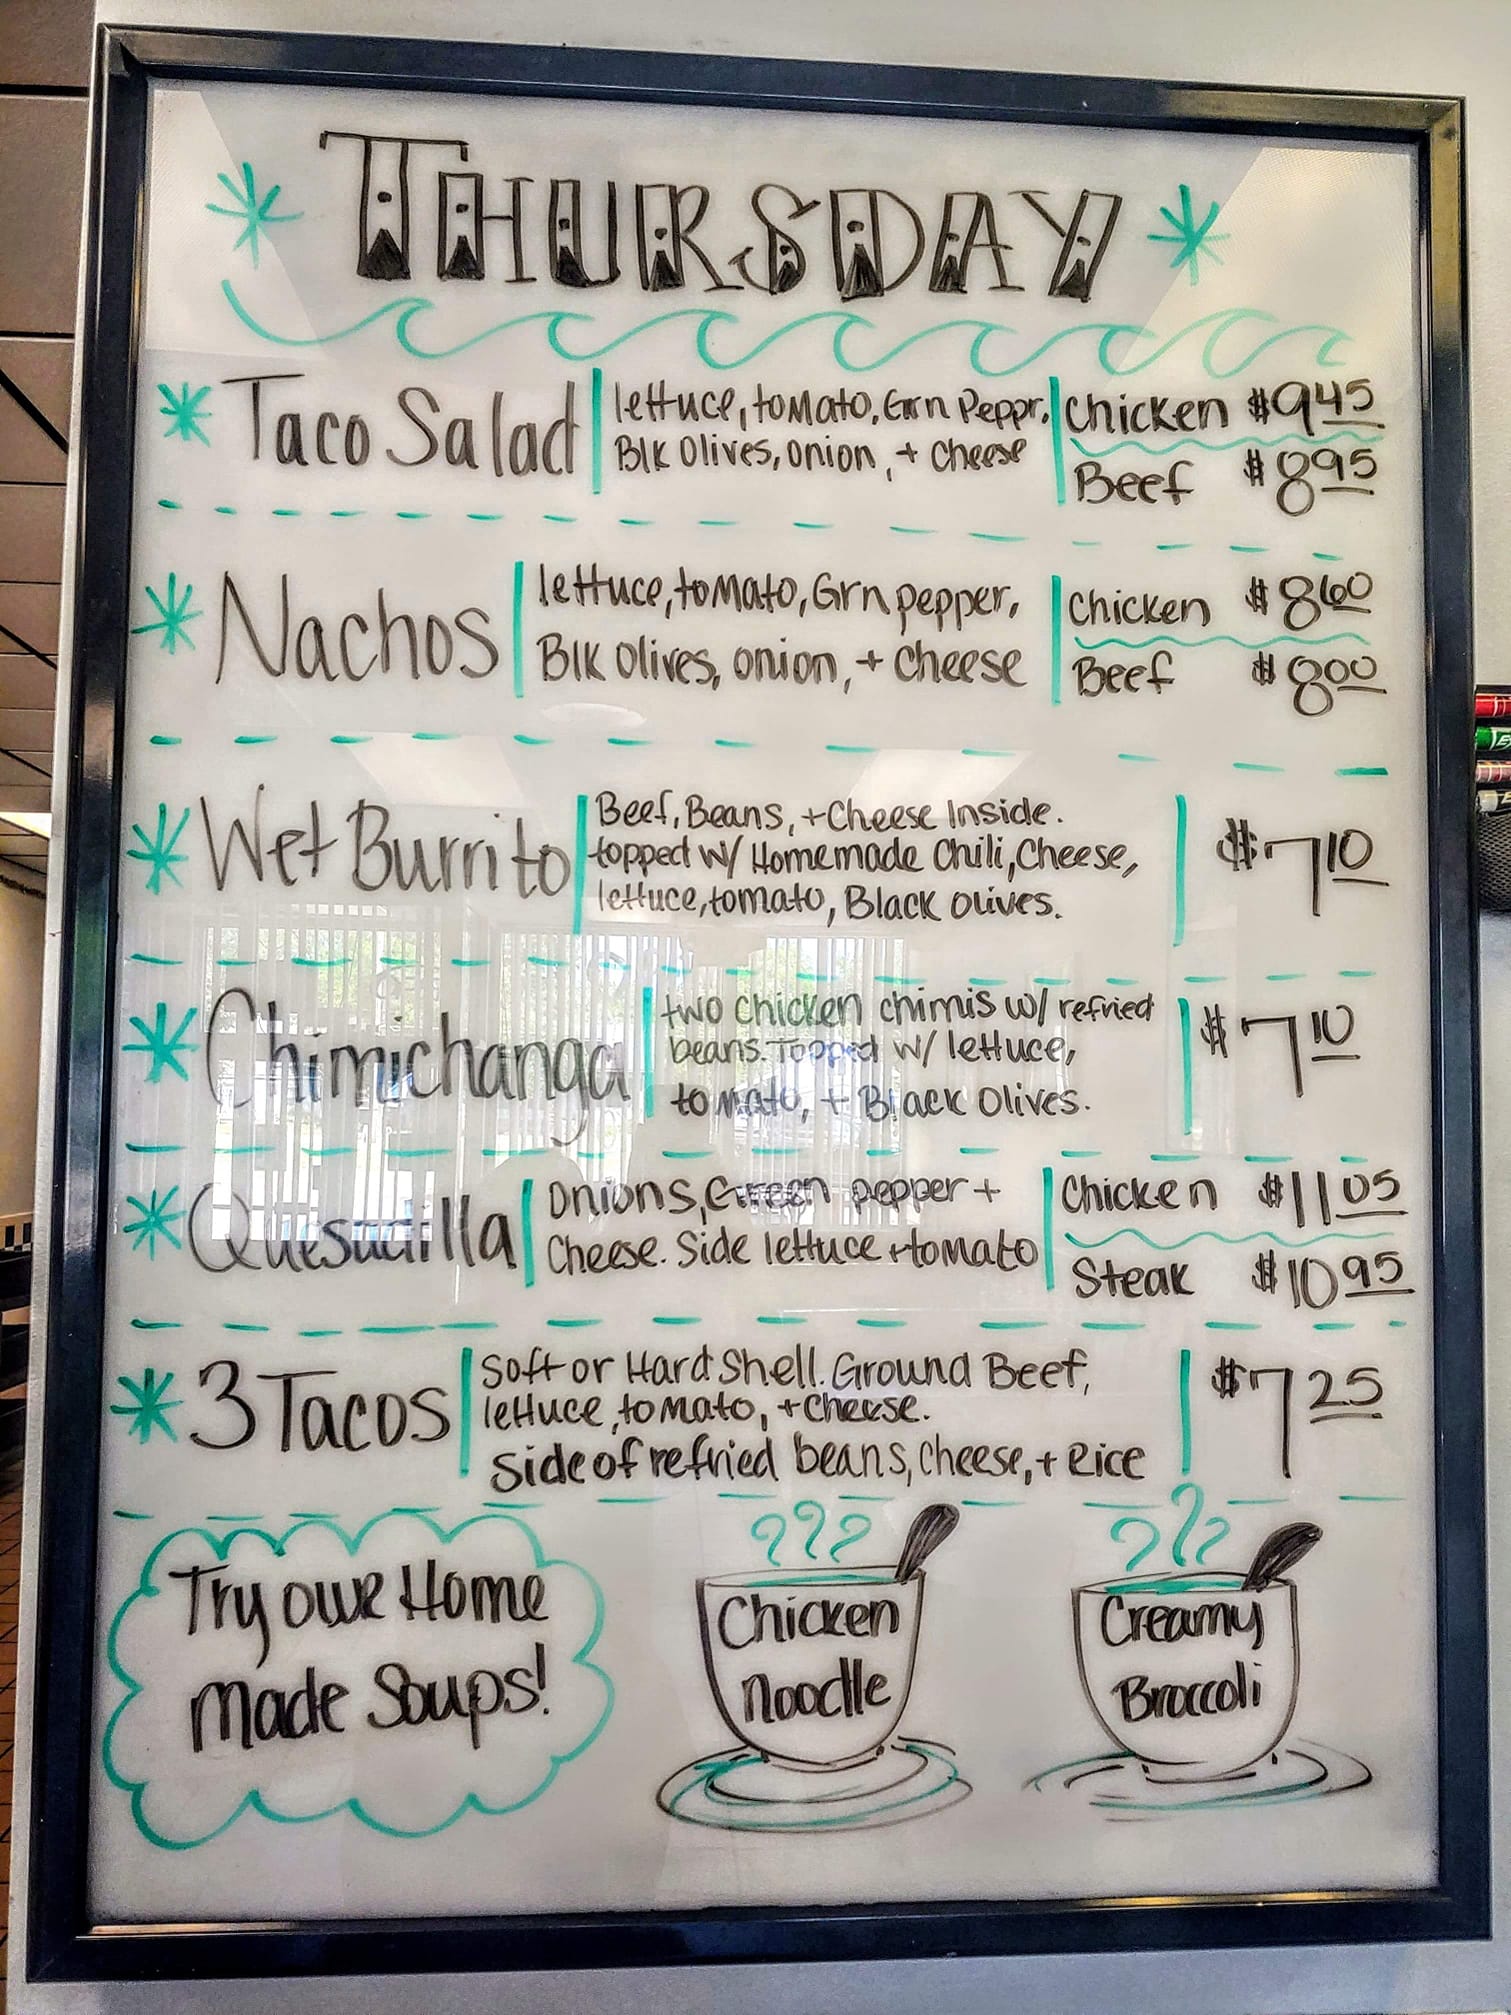 THURSDAY
Taco Salad
lettuce, tomato, Grn Peppr,
Blk Olives, onion, + cheese
Chicken $9.45
Beef $8.95
Nachos
lettuce, tomato, Grn pepper,
Blk Olives, onion, + cheese
Chicken $8.60
Beef $8.00
Wet Burrito
Beef, Beans, + Cheese Inside.
topped w/ Homemade Chili, Cheese,
lettuce, tomato, Black olives.
$7.10
Chimichanga
two chicken chimis w/ refried
beans. Topped w/ lettuce,
tomato, + Black Olives.
$7.10
Quesadilla
Onions, Green pepper +
Cheese. Side lettuce + tomato
Chicken $11.05
Steak $10.95
3 Tacos
Soft or Hard Shell. Ground Beef,
lettuce, tomato, + cheese.
side of refried beans, cheese, + Rice
$7.25
Try our Home
made Soups!
Chicken
Noodle
Creamy
Broccoli